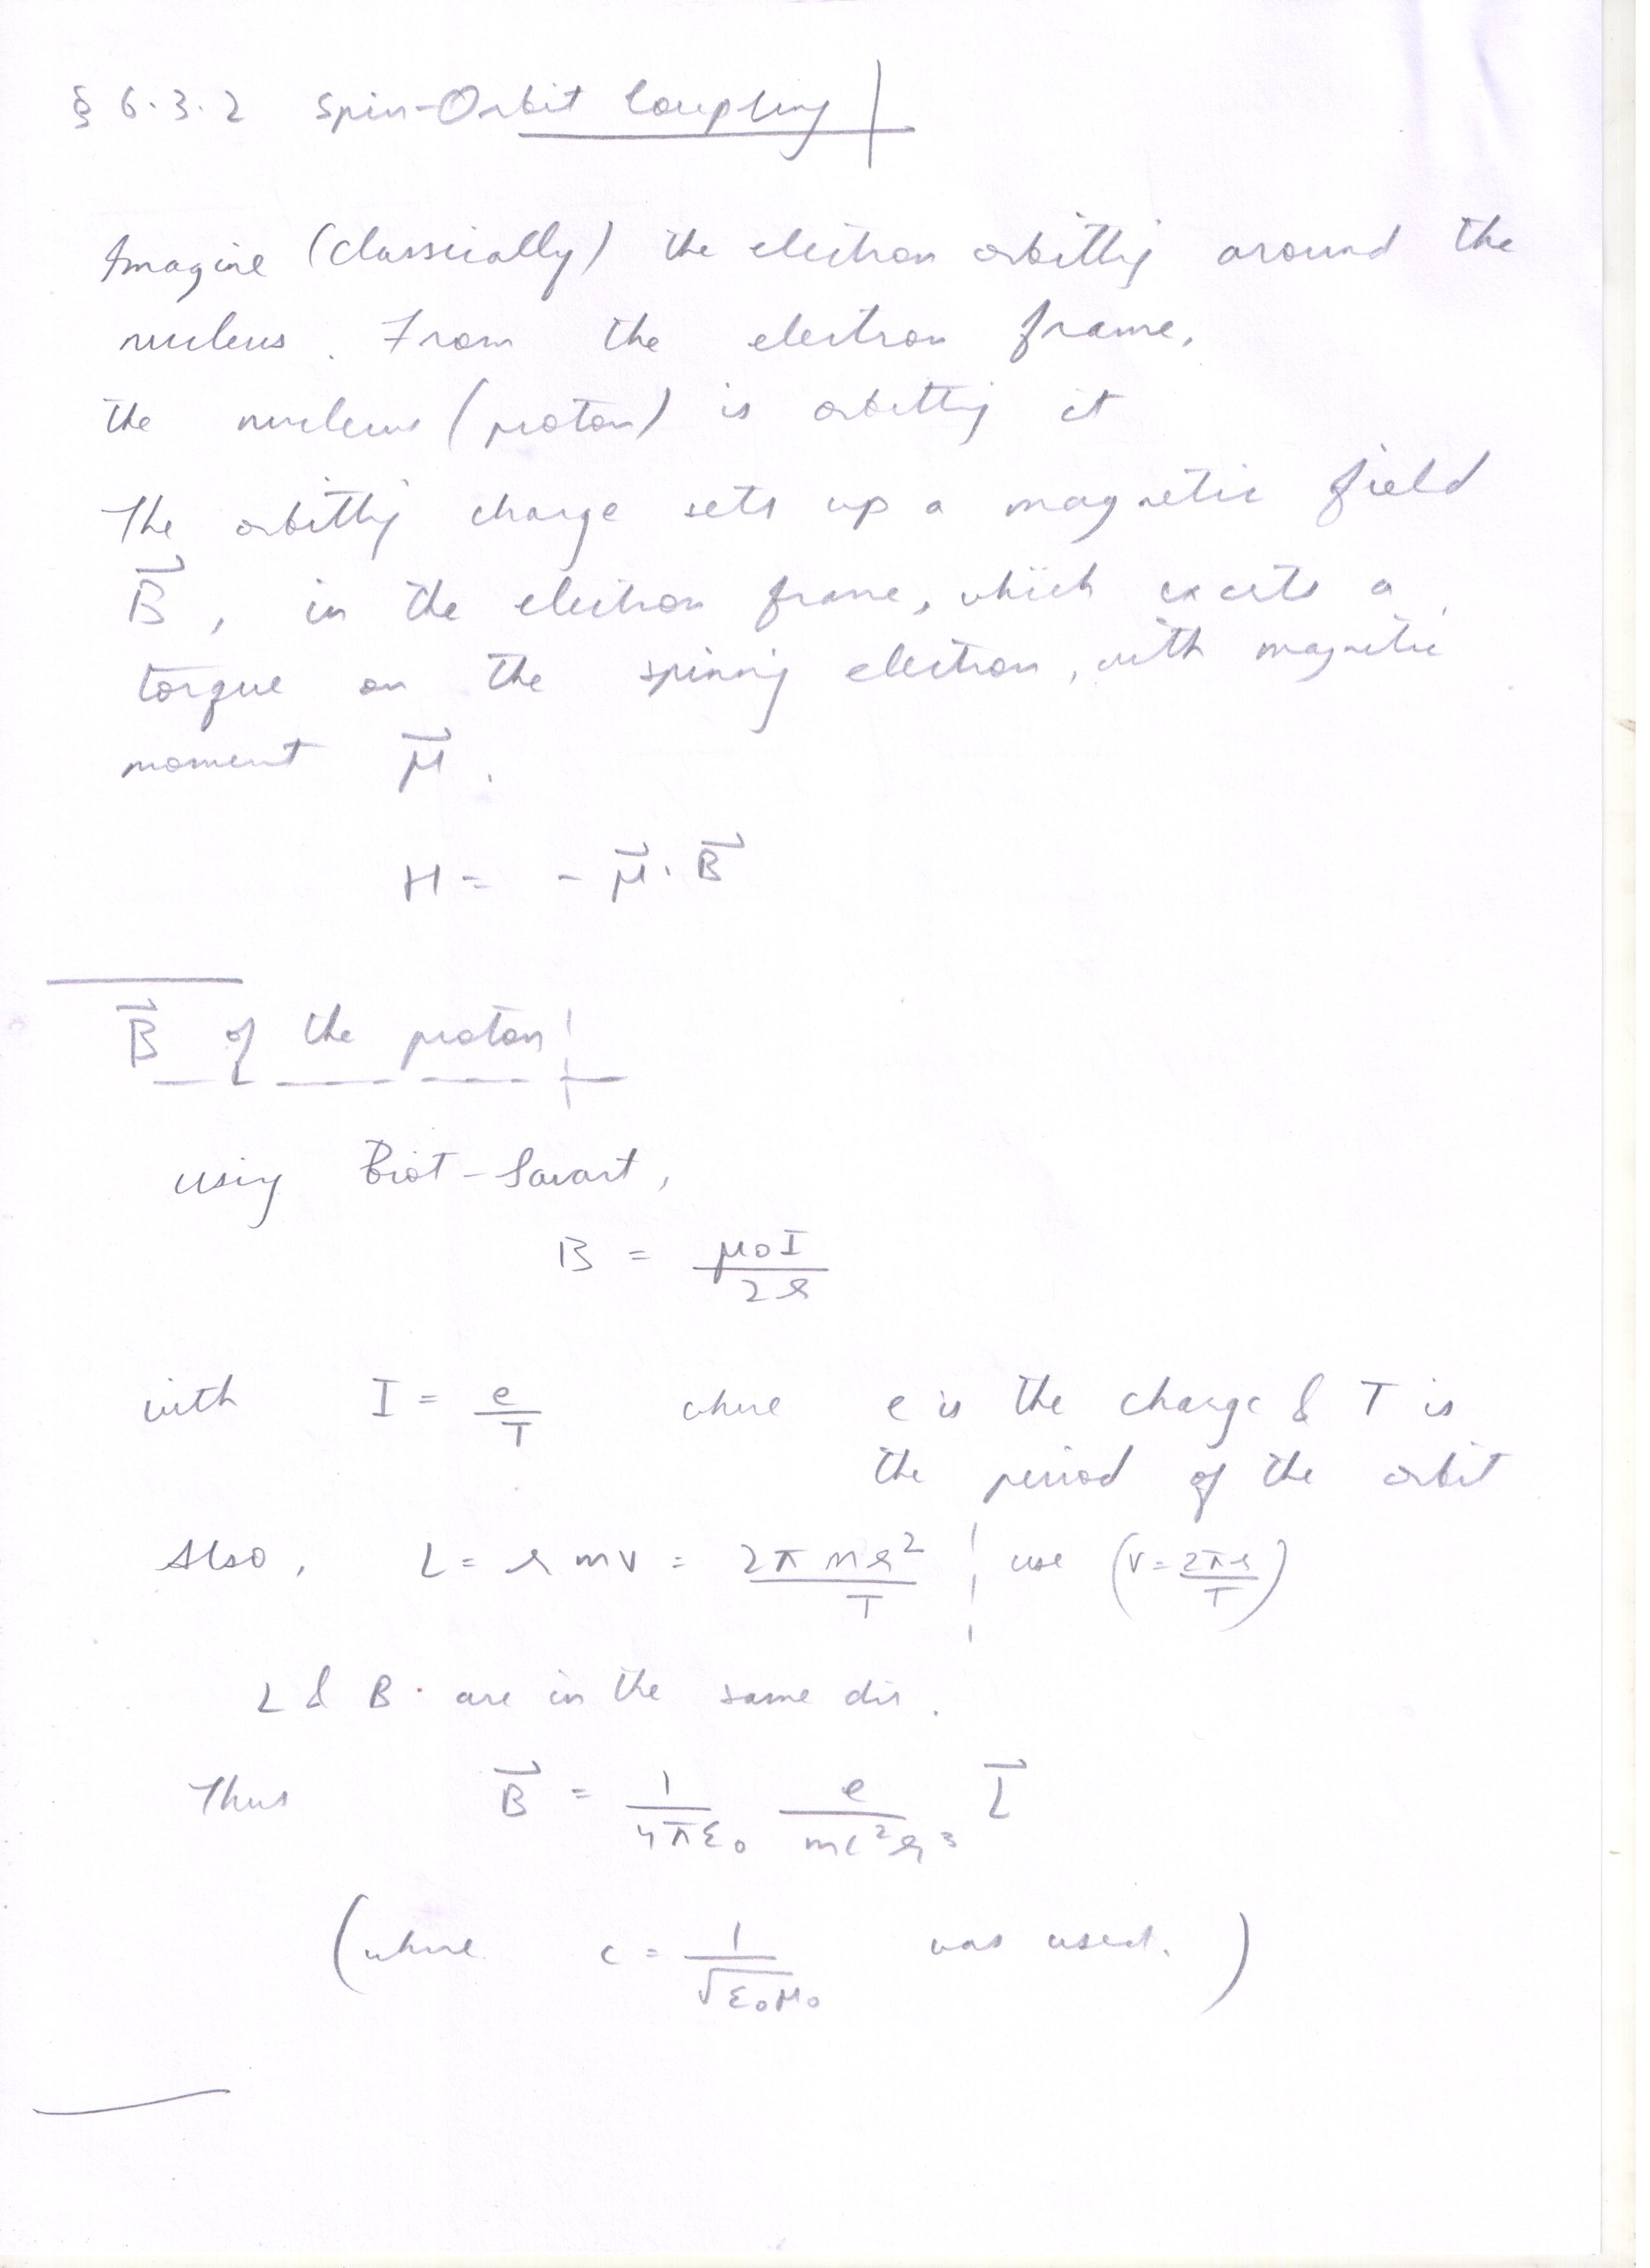 § 6.3.2 Spin-Orbit Coupling
Imagine (classically) the electron orbitting around the
nucleus. From the electron frame,
the nucleus (proton) is orbitting it
The orbitting charge sets up a magnetic field
B⃗, in the electron frame, which exerts a
torque on the spinning electron, with magnetic
moment μ⃗.
H = - μ⃗ · B⃗
B⃗ of the proton
using Biot-Savart,
B = μ₀I / 2r
with I = e/T where e is the charge & T is
the period of the orbit
Also, L = r m v = 2π m r² / T use (v = 2πr / T)
L & B are in the same dir.
Thus B⃗ = 1/(4πε₀) e/(mc²r³) L⃗
(where c = 1/√(ε₀μ₀) was used.)